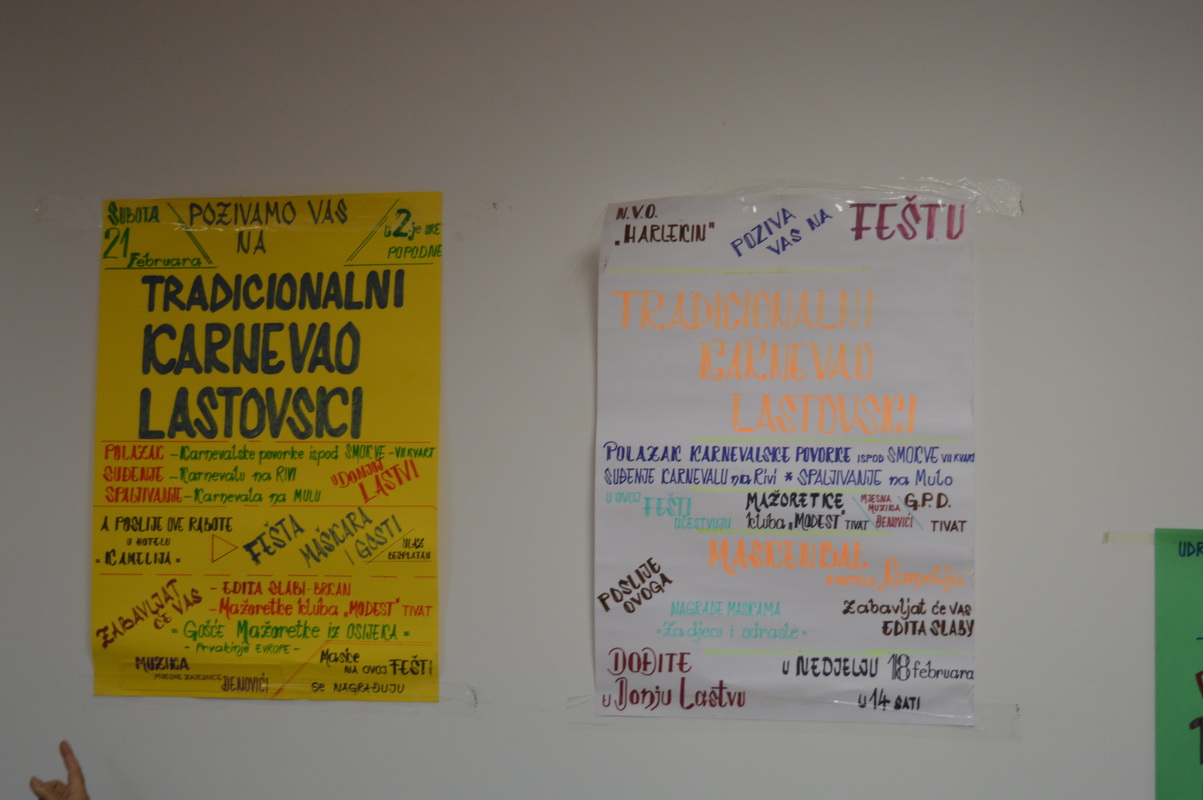 SUBOTA
21
Februara
POZIVAMO VAS
NA
u 2 je ure
POPODNE
TRADICIONALNI
KARNEVAO
LASTOVSKI
POLAZAK - Karnevalske povorke ispod SMOKVE - VII KVART
SUĐENJE - Karnevalu na RIVI
SPALJIVANJE - Karnevala na MULU
U DONJOJ
LASTVI
A POSLIJE OVE RABOTE
U HOTELU
"KAMELIJA"
FEŠTA
MAŠKARA
I GOSTI
ULAZ
BESPLATAN
ZABAVLJAT
ĆE VAS
- EDITA SLABI-BRCAN
- Mažoretke kluba "MODEST" TIVAT
- Gošće Mažoretke iz OSIJEKA -
- Prvakinje EVROPE -
MUZIKA
MJESNE ZAJEDNICE
ĐENOVIĆI
Maske
NA OVOJ FEŠTI
se NAGRAĐUJU
N.V.O.
"HARLEKIN"
POZIVA
VAS NA
FEŠTU
TRADICIONALNI
KARNEVAO
LASTOVSKI
POLAZAK KARNEVALSKE POVORKE ISPOD SMOKVE VII KVART
SUĐENJE KARNEVALU na Rivi * SPALJIVANJE na Mulo
U OVOJ
FEŠTI
UČESTVUJU
MAŽORETKE
kluba "MODEST" TIVAT
MJESNA
MUZIKA
ĐENOVIĆI
G.P.D.
TIVAT
POSLIJE
OVOGA
MASKENBAL
u HOTELU Kamelija
NAGRADE MASKAMA
- Za djecu i odrasle -
Zabavljat će VAS
EDITA SLABY
DOĐITE
u Donju Lastvu
U NEDJELJU 18 februara
U 14 SATI
UDR